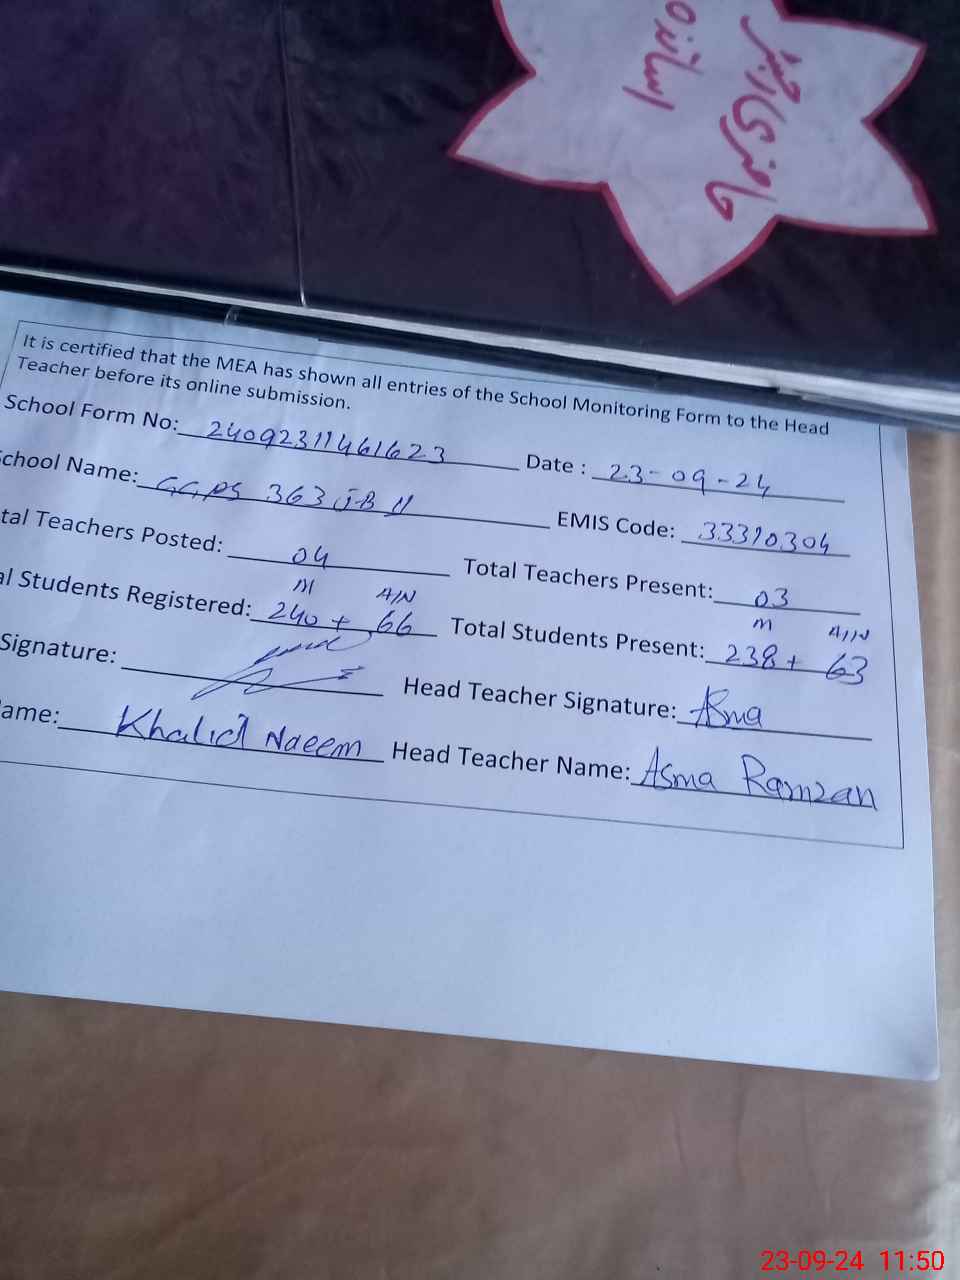 حاضری رجسٹر
اساتذہ
It is certified that the MEA has shown all entries of the School Monitoring Form to the Head
Teacher before its online submission.
School Form No: 24092311461623 Date : 23-09-24
chool Name: GGPS 363 JB II EMIS Code: 33310304
tal Teachers Posted: 04 Total Teachers Present: 03
M A/N M A/N
al Students Registered: 240 + 66 Total Students Present: 238 + 63
Signature: Head Teacher Signature: Asma
ame: Khalid Naeem Head Teacher Name: Asma Ramzan
23-09-24 11:50